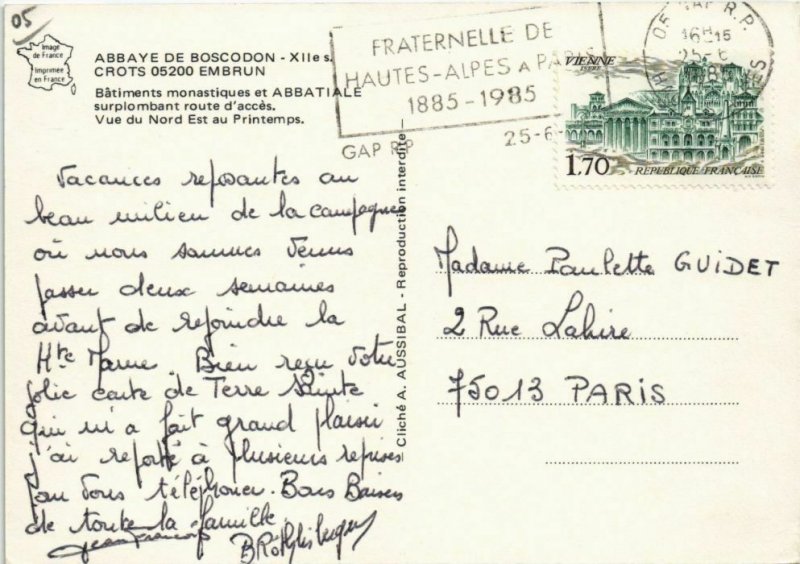 05
Image
de France
Imprimée
en France
ABBAYE DE BOSCODON - XIIe s.
CROTS 05200 EMBRUN
Bâtiments monastiques et ABBATIALE
surplombant route d'accès.
Vue du Nord Est au Printemps.
FRATERNELLE DE
HAUTES-ALPES A PARIS
1885-1985
GAP RP
25-6
05 GAP R.P.
16H15
25-6
VIENNE
ISERE
1,70
REPUBLIQUE FRANÇAISE
Vacances reposantes au
beau milieu de la campagne
où nous sommes venus
passer deux semaines
avant de rejoindre la
Hte Marne. Bien reçu votre
jolie carte de Terre Sainte
qui m'a fait grand plaisir
j'ai reporté à plusieurs reprises
pour vous téléphoner. Bons Baisers
de toute la famille
Jean François
Cliché A. AUSSIBAL - Reproduction interdite
Madame Paulette GUIDET
2 Rue Lahire
75013 PARIS